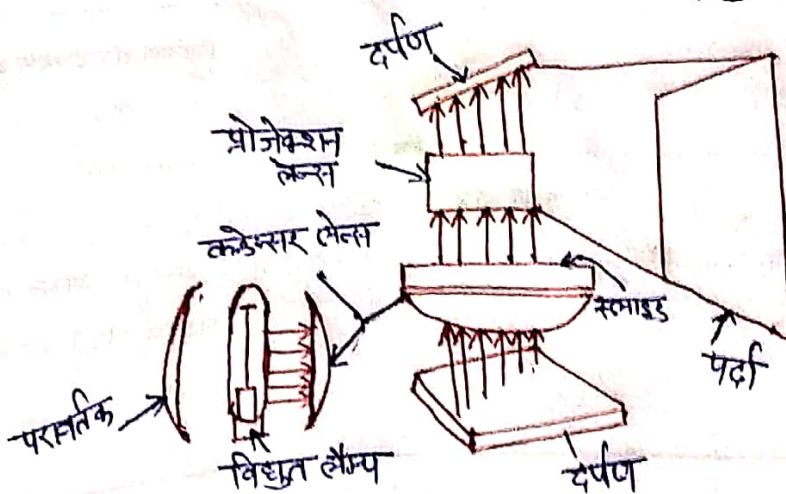 दर्पण
प्रोजेक्शन
लेन्स
कन्डेन्सर लेन्स
स्लाइड
पर्दा
परावर्तक
विधुत लैम्प
दर्पण